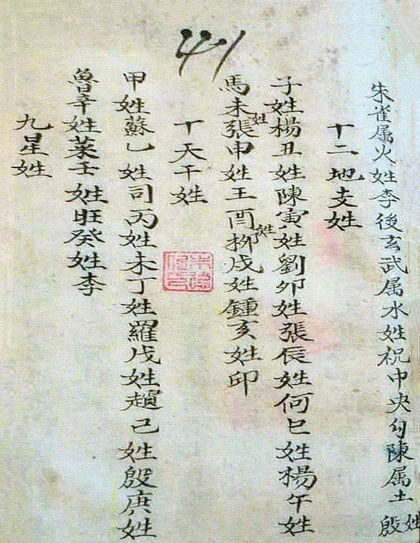 41
朱雀属火姓李後玄武属水姓祝中央勾陳属土姓殷
十二地支姓
子姓楊丑姓陳寅姓劉卯姓張辰姓何巳姓楊午姓
馬未姓張申姓王酉姓柳戌姓鍾亥姓印
十天干姓
甲姓蘇乙姓司丙姓未丁姓羅戊姓趙己姓殷庚姓
魯辛姓菜壬姓旺癸姓李
九星姓